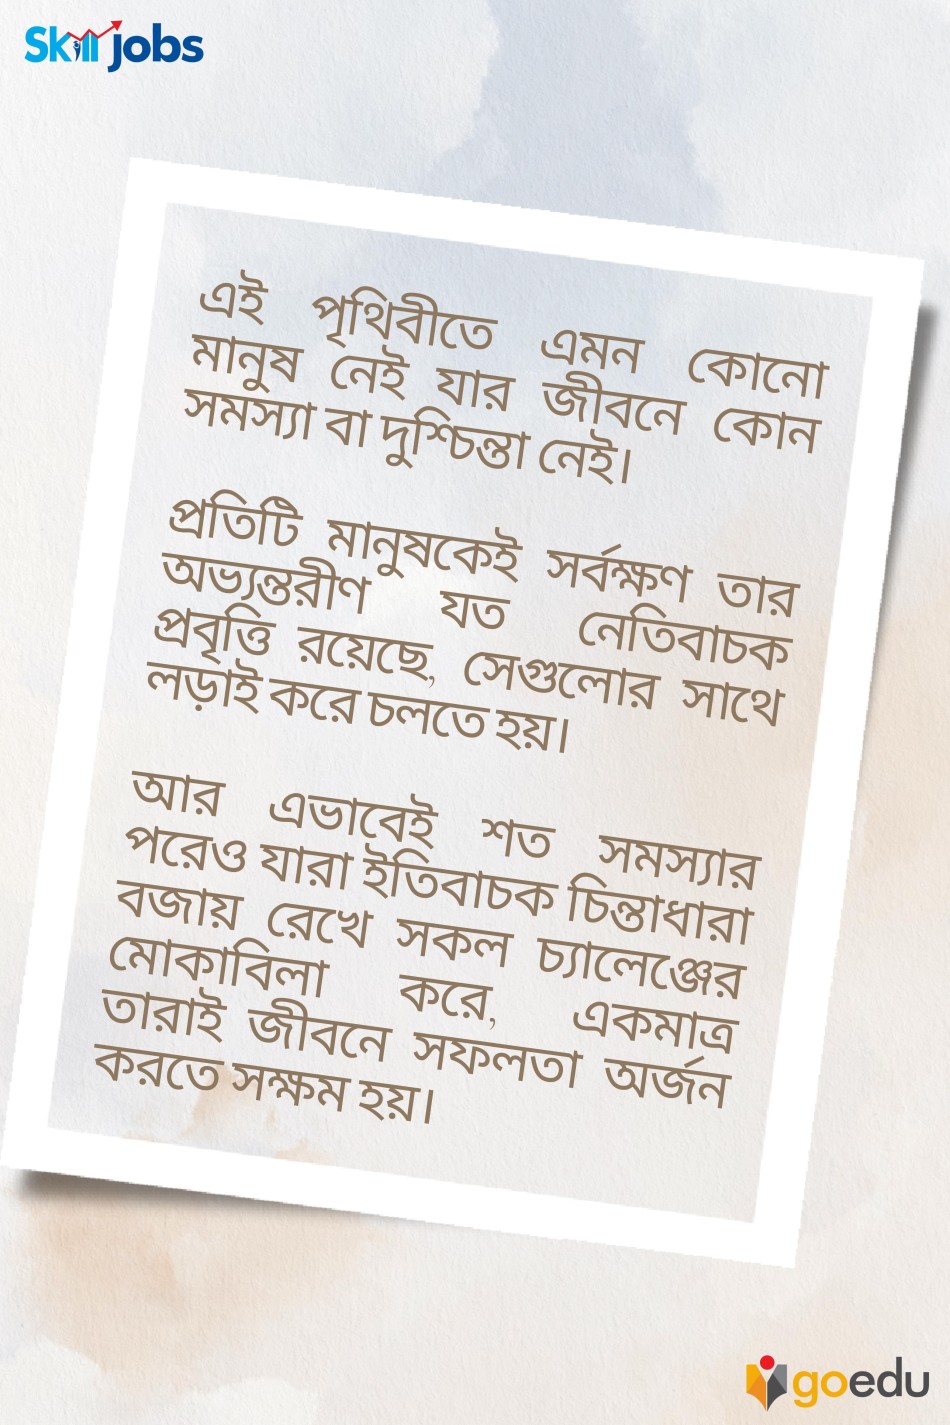 Skill jobs
এই পৃথিবীতে এমন কোনো
মানুষ নেই যার জীবনে কোন
সমস্যা বা দুশ্চিন্তা নেই।
প্রতিটি মানুষকেই সর্বক্ষণ তার
অভ্যন্তরীণ যত নেতিবাচক
প্রবৃত্তি রয়েছে, সেগুলোর সাথে
লড়াই করে চলতে হয়।
আর এভাবেই শত সমস্যার
পরেও যারা ইতিবাচক চিন্তাধারা
বজায় রেখে সকল চ্যালেঞ্জের
মোকাবিলা করে, একমাত্র
তারাই জীবনে সফলতা অর্জন
করতে সক্ষম হয়।
goedu